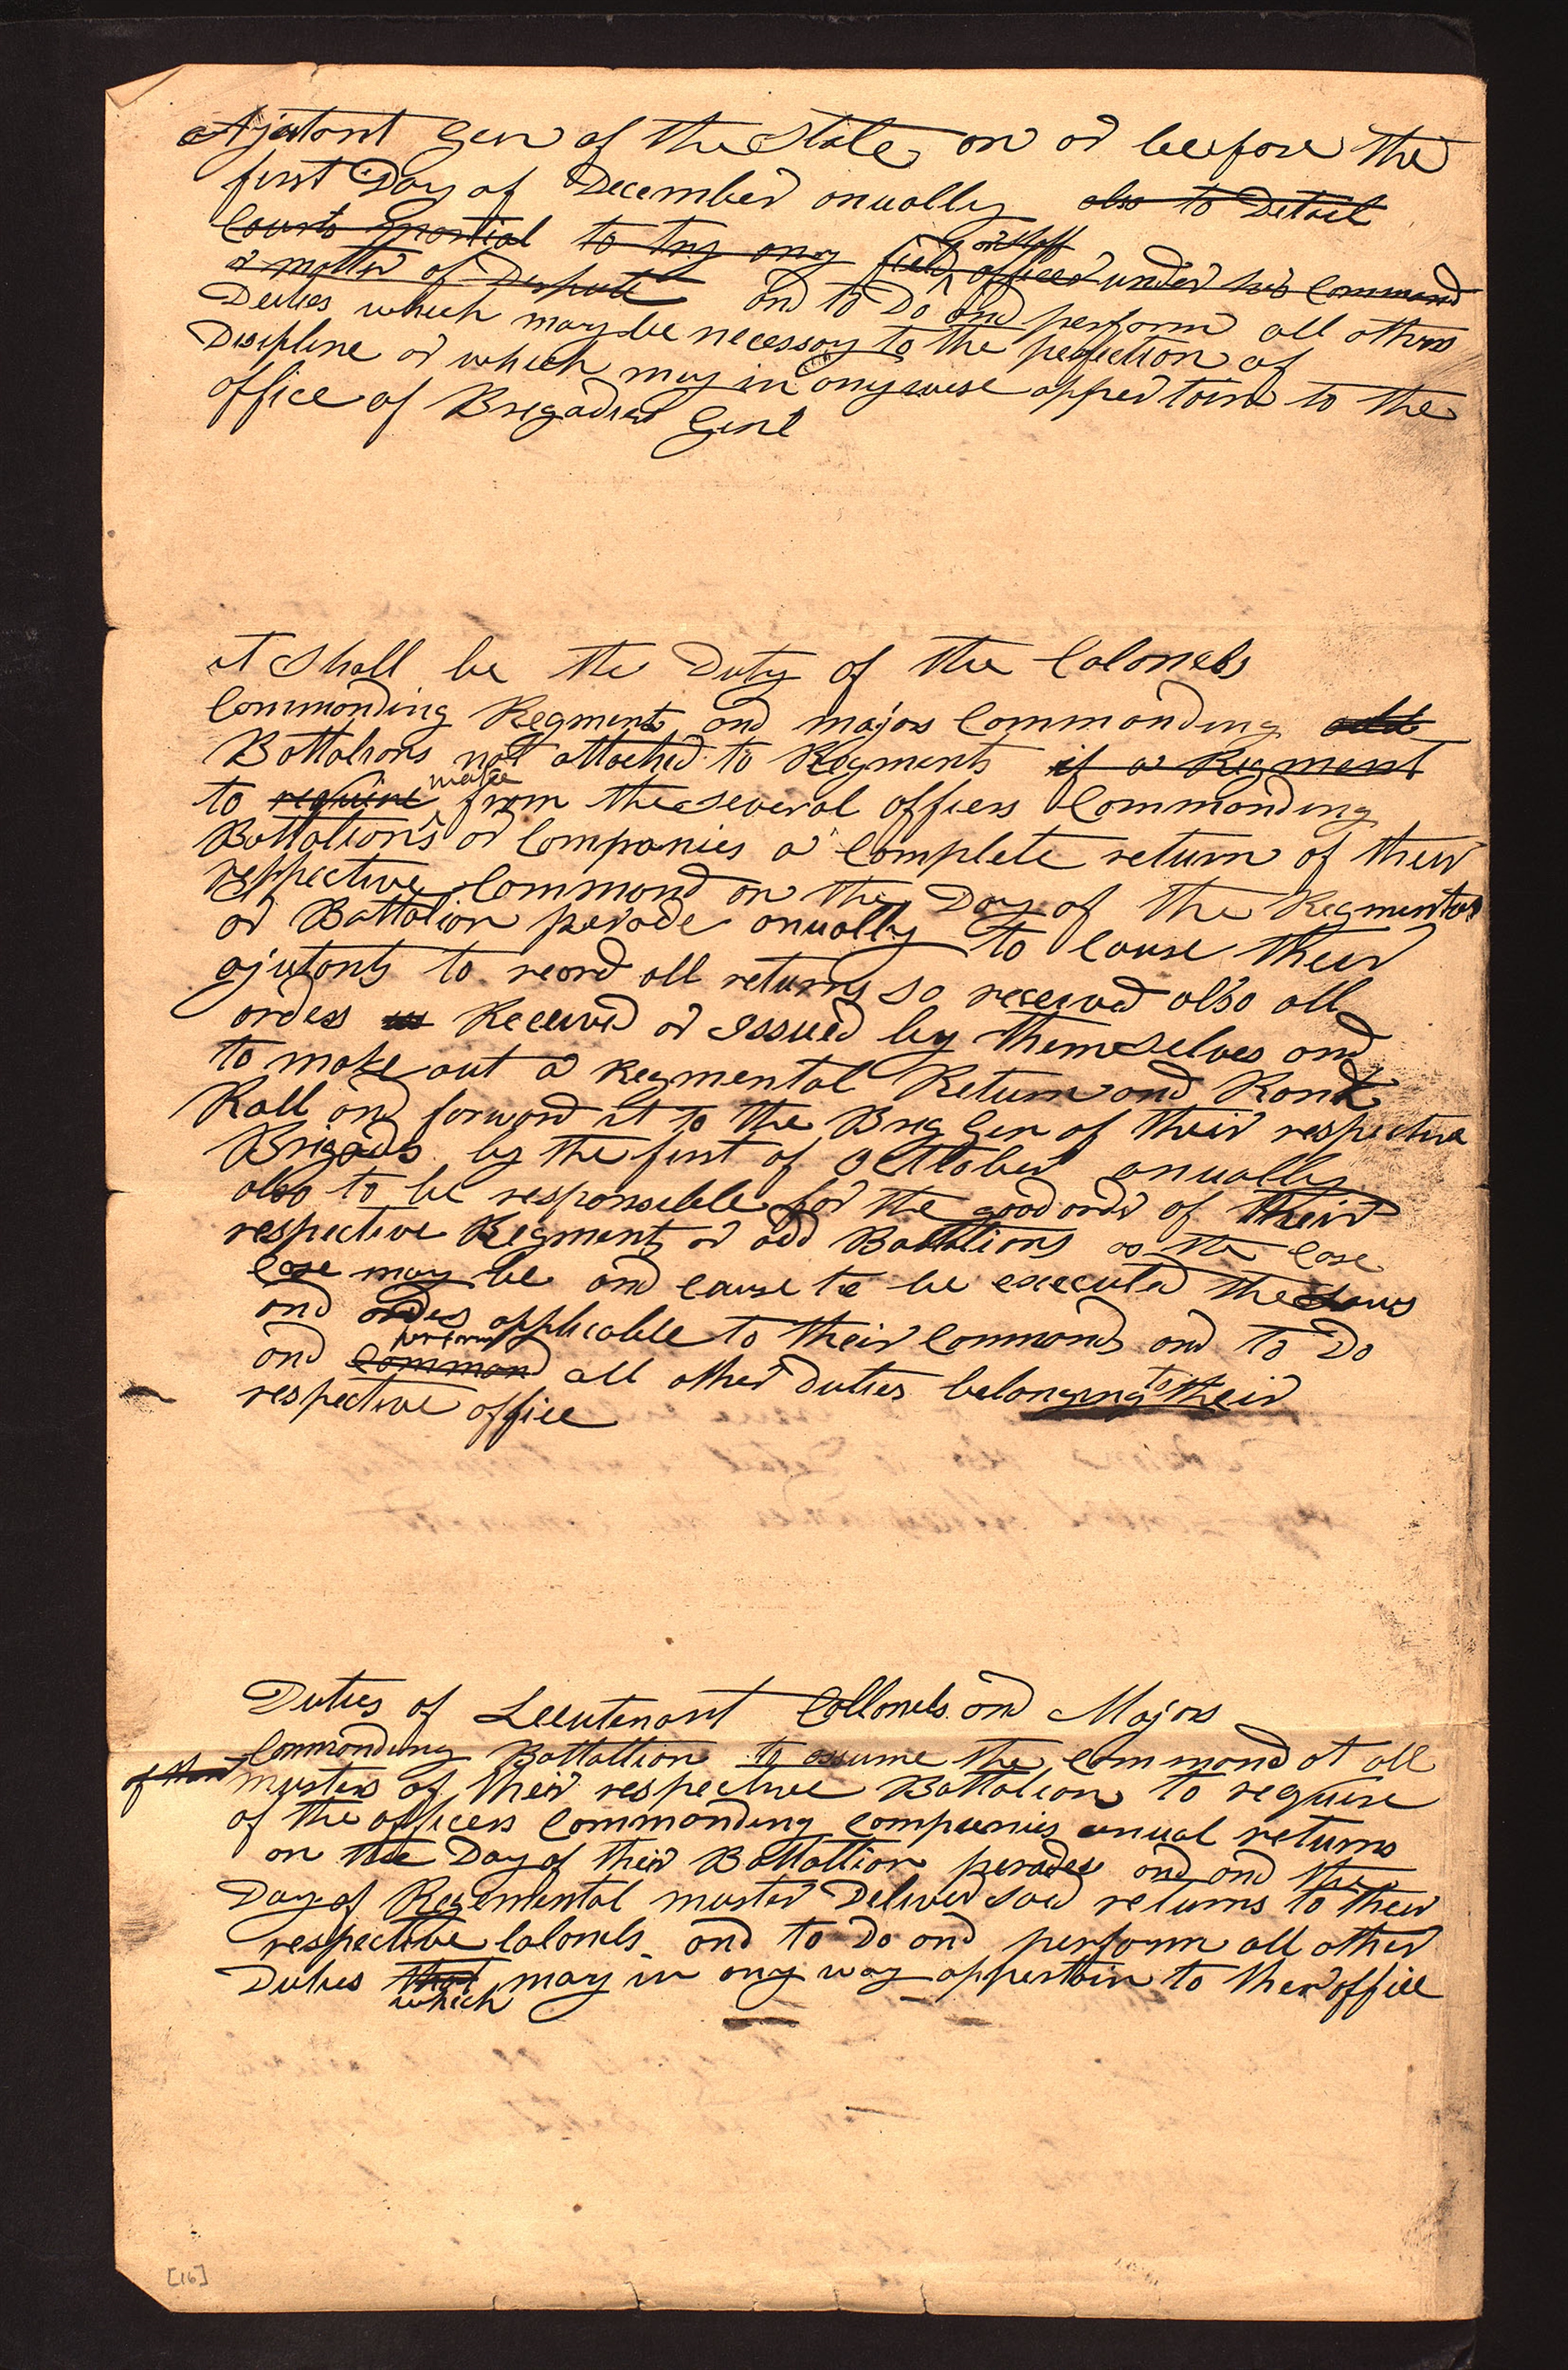 Ajutant Gen of the State on or beefore the
first Day of December anually also to Detail
Courts Martial to try any field or staff officer under his Command
a matter of Dispute and to Do and perform all others
Deuties which may be necessary to the perfection of
Disipline or which may in any wise appertain to the
office of Brigadier Genl
it shall be the Duty of the Colonels
Commanding Regments and majors Commanding odd
Battalions not attached to Regments if a Regment
to require make from the several officers Commanding
Battalions or Companies a Complete return of their
respective Command on the Day of the Regmental
or Battalion perade anually to cause their
ajutants to reord all returns so received also all
orders us Received or Issued by themselves and
to make out a Regmental Return and Rank
Rall and forward it to the Brig Gen of their respective
Brigads by the first of Octtober anually
also to be responsible for the good ordr of their
respective Regments or odd Battalions as the Case
Case may be and cause to be executed the Laws
and orders applicable to their Commands and to Do
and command perform all other Duties belonging to their
respective office
Duties of Lieutenant Collonels and Majors
Commanding Battaltion to assume the Command at all
of their musters of their respective Battalion to require
of the officers Commanding Compenies anual returns
on the Day of their Battaltion perades and and the
Day of Regemental muster Deliver said returns to their
respective Colonels and to Do and perform all other
Duties that which may in any way appertain to their office
[16]